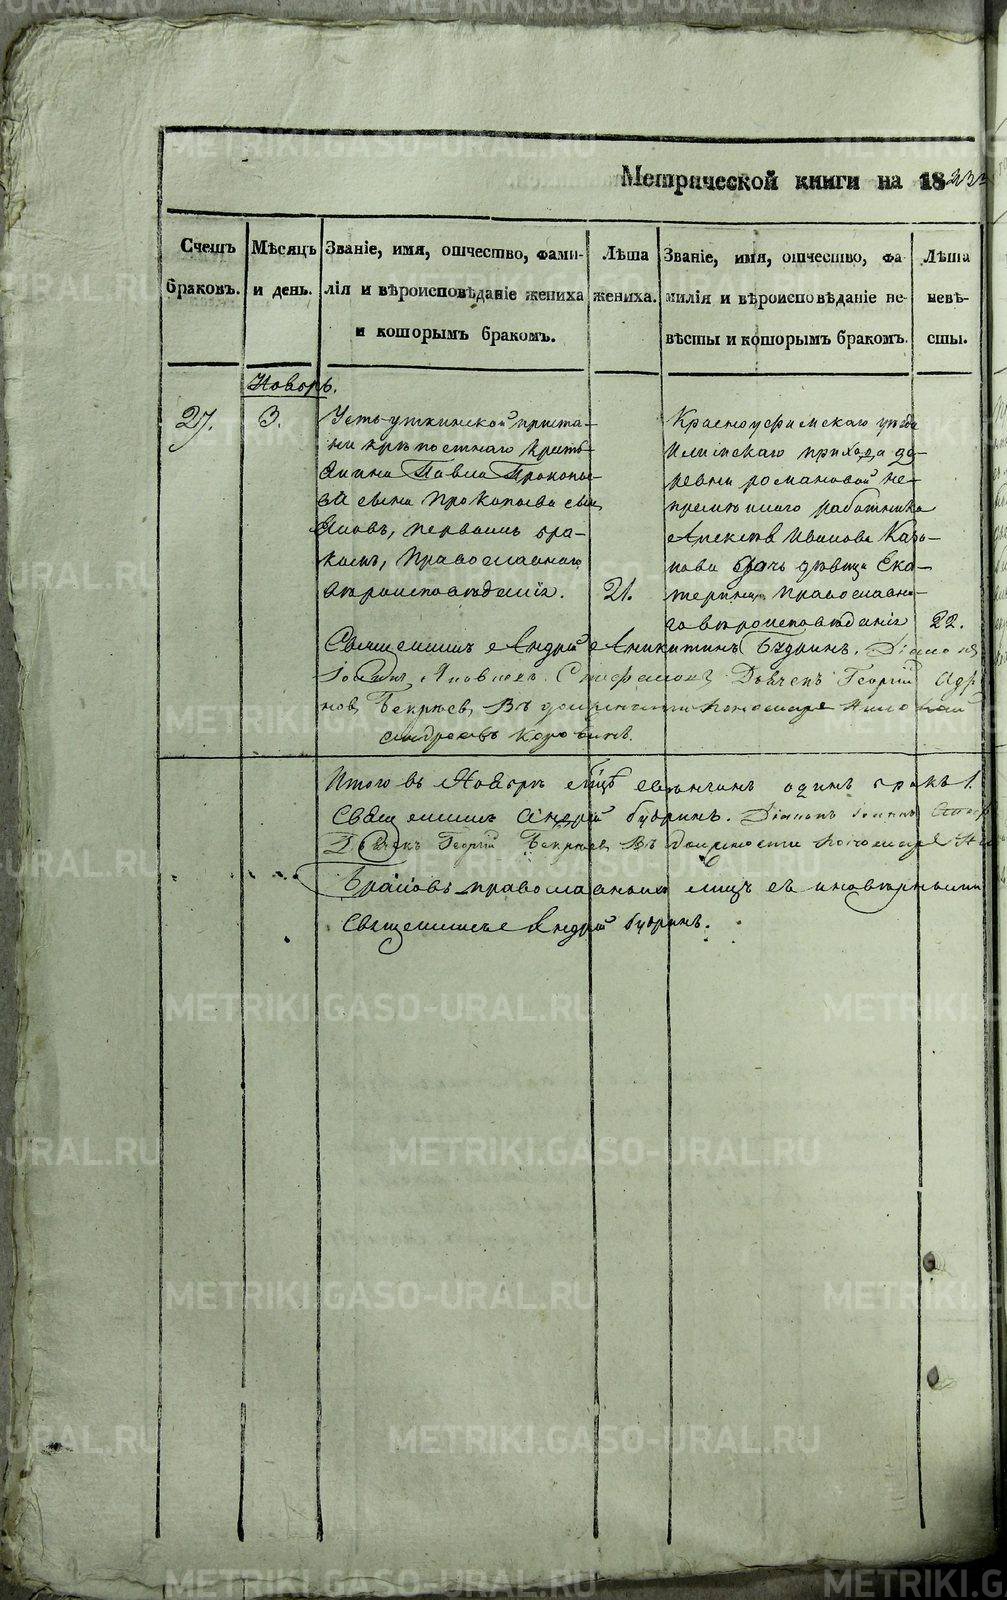 Метрической книги на 18
Счетъ браковъ.
Мѣсяцъ и день.
Званіе, имя, отчество, фами-
лія и вѣроисповѣданіе жениха
и которымъ бракомъ.
Лѣта
жениха.
Званіе, имя, отчество, фа-
милія и вѣроисповѣданіе не-
вѣсты и которымъ бракомъ.
Лѣта
невѣ-
сты.
Ноябрь.
27.
3.
Усть-уткинской приста-
ни крѣпостнаго
Павла Прокопье-
сына Прокопьева сынъ
Яковъ, первымъ бра-
комъ, Православнаго
вѣроисповѣданія.
21.
Красноуфимскаго уѣзда
прихода де-
ревни романовой не-
премѣннаго работника
Алексѣя Иванова
дочь дѣвица Ека-
терина, Православна-
го вѣроисповѣданія
22.
Священникъ Андрей Аникитинъ Будринъ. Діаконъ
Іоаннъ Яковлевъ Дьячекъ Георгій
Бекряев, Въ должности Пономаря
Итого въ Ноябрѣ мѣсяцѣ вѣнчанъ одинъ бракъ 1.
Священникъ Андрей Будринъ. Діаконъ Іоаннъ
Дьячекъ Георгій Бекряев, Въ должности Пономаря
Браковъ православныхъ лицъ съ иновѣрными
Священникъ Андрей Будринъ.
METRIKI.GASO-URAL.RU